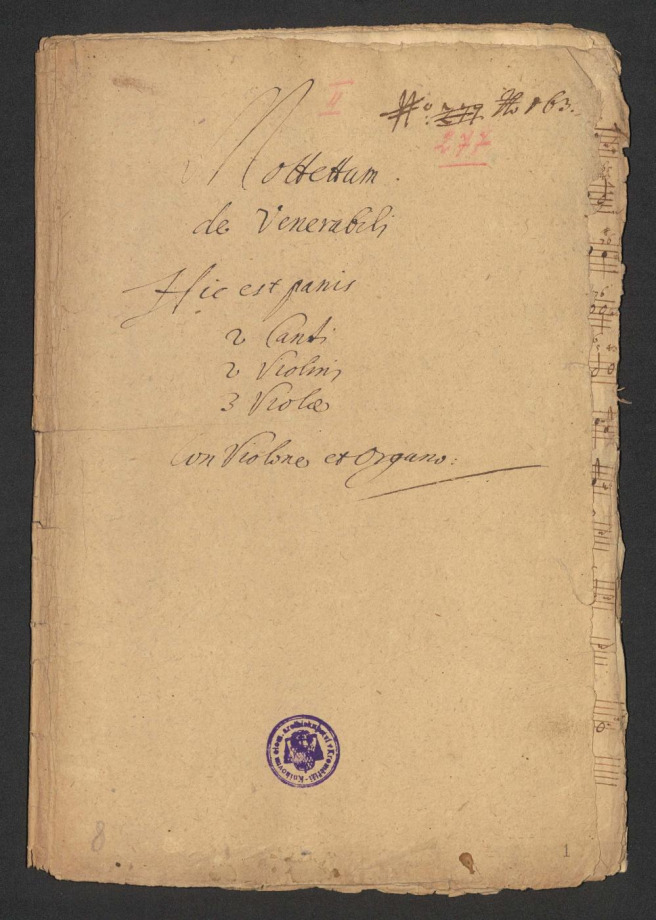 II
No. 279 No 163.
277
Mottettum.
de Venerabili
Hic est panis
2 Canti
2 Violini
3 Violæ
Con Violone et Organo:
8
1